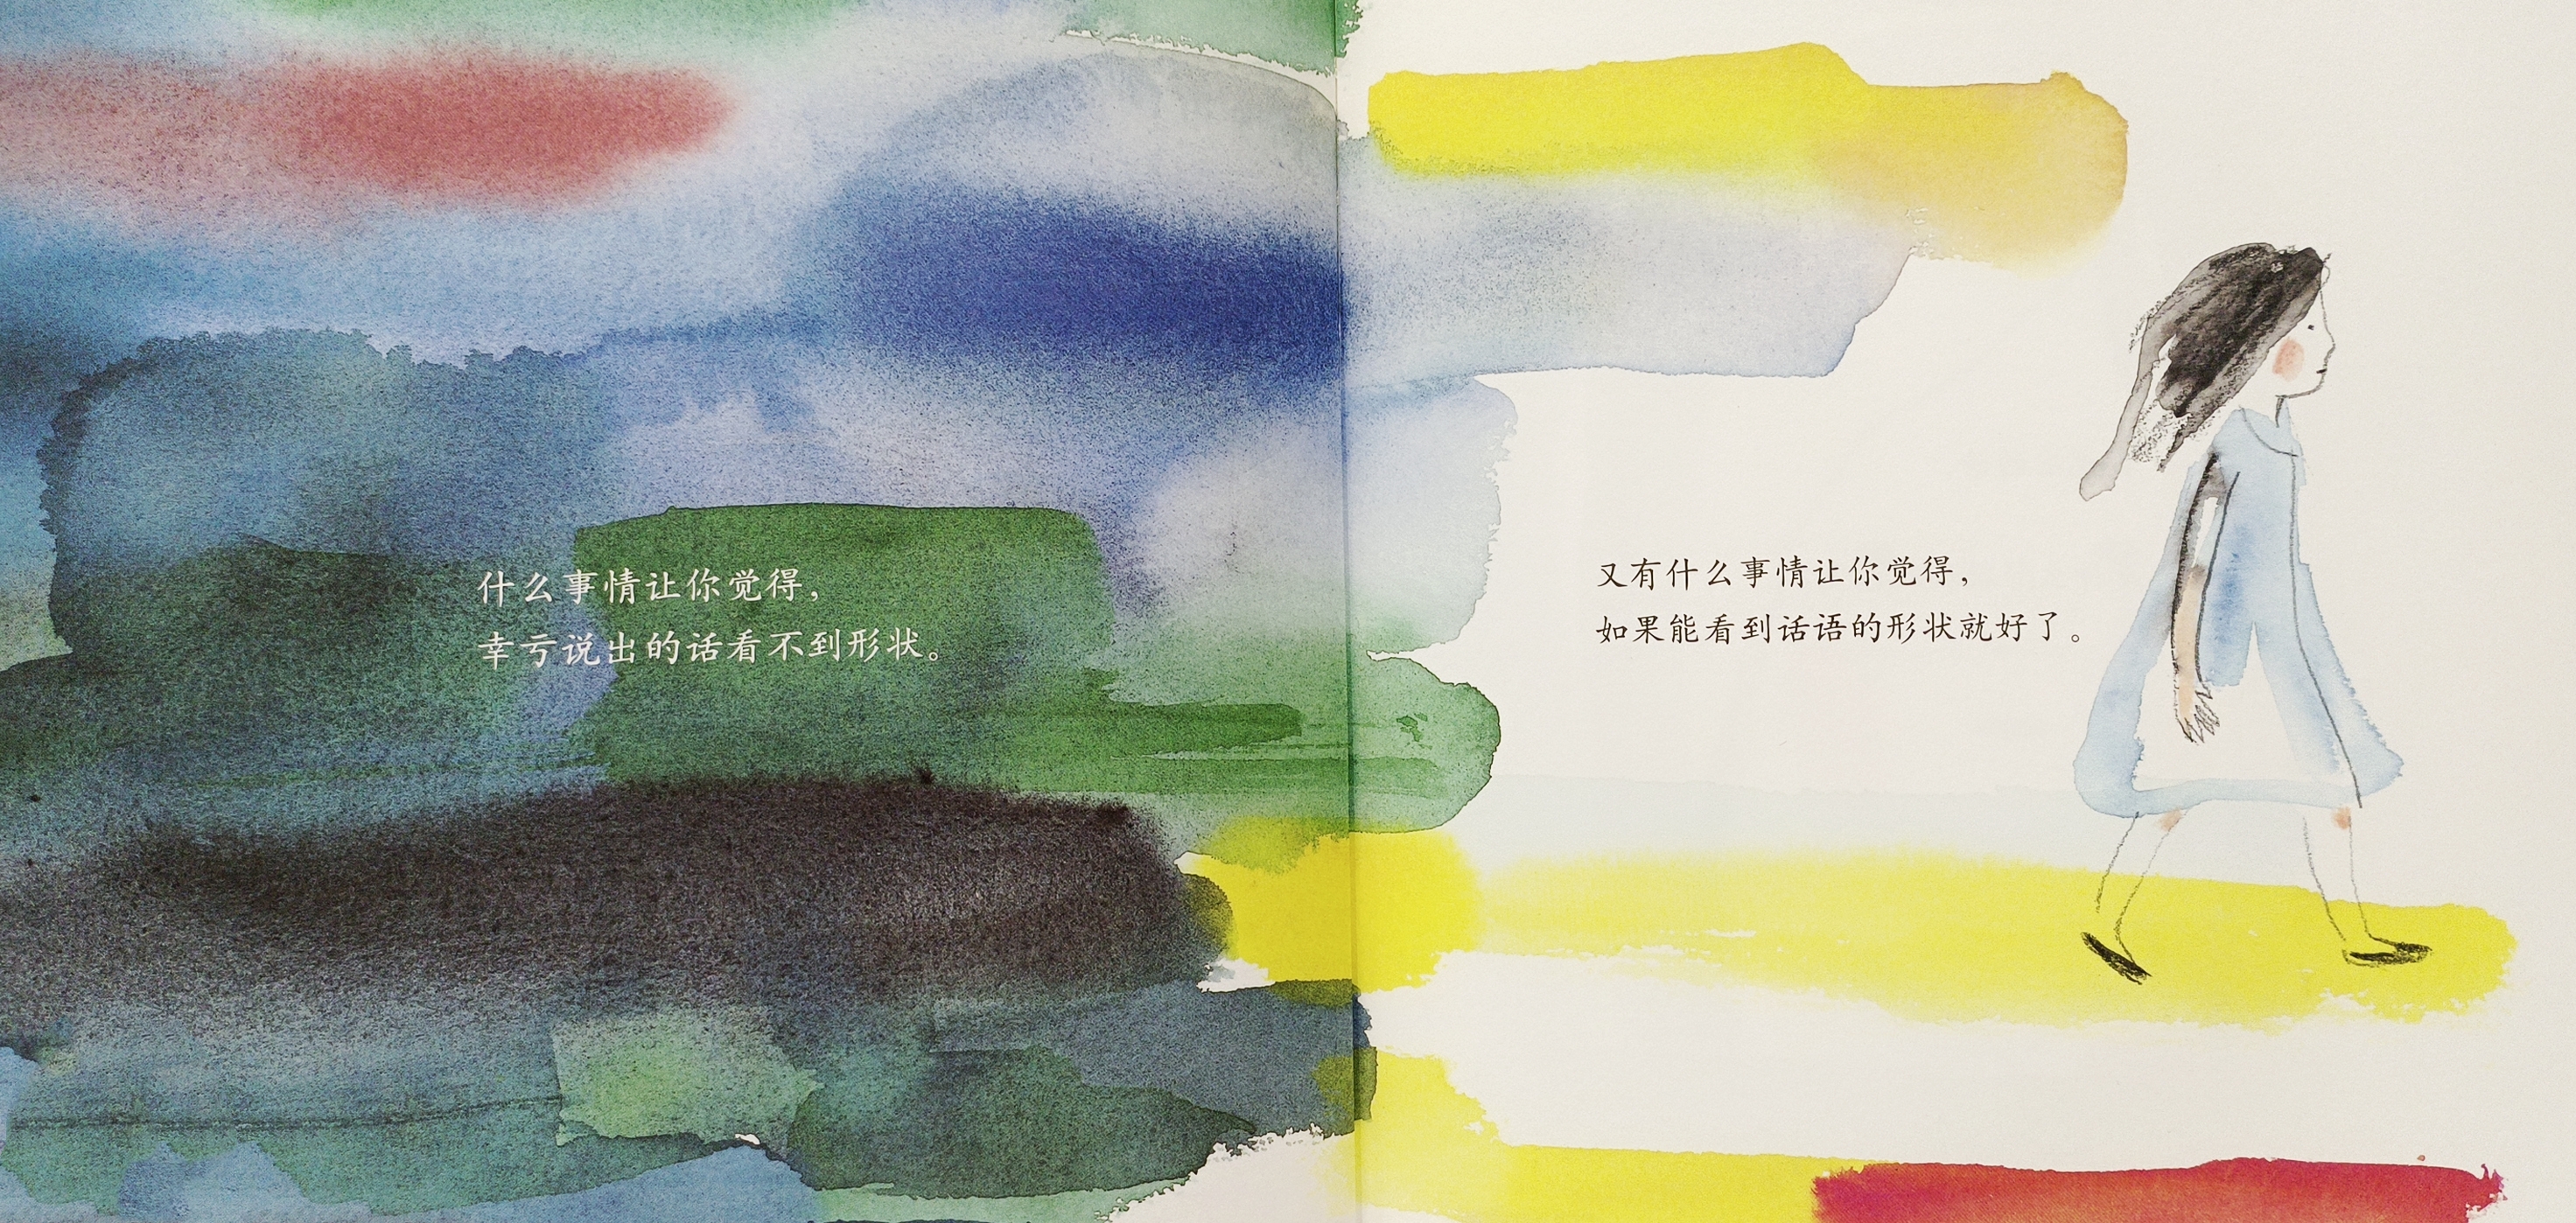 什么事情让你觉得，
幸亏说出的话看不到形状。
又有什么事情让你觉得，
如果能看到话语的形状就好了。